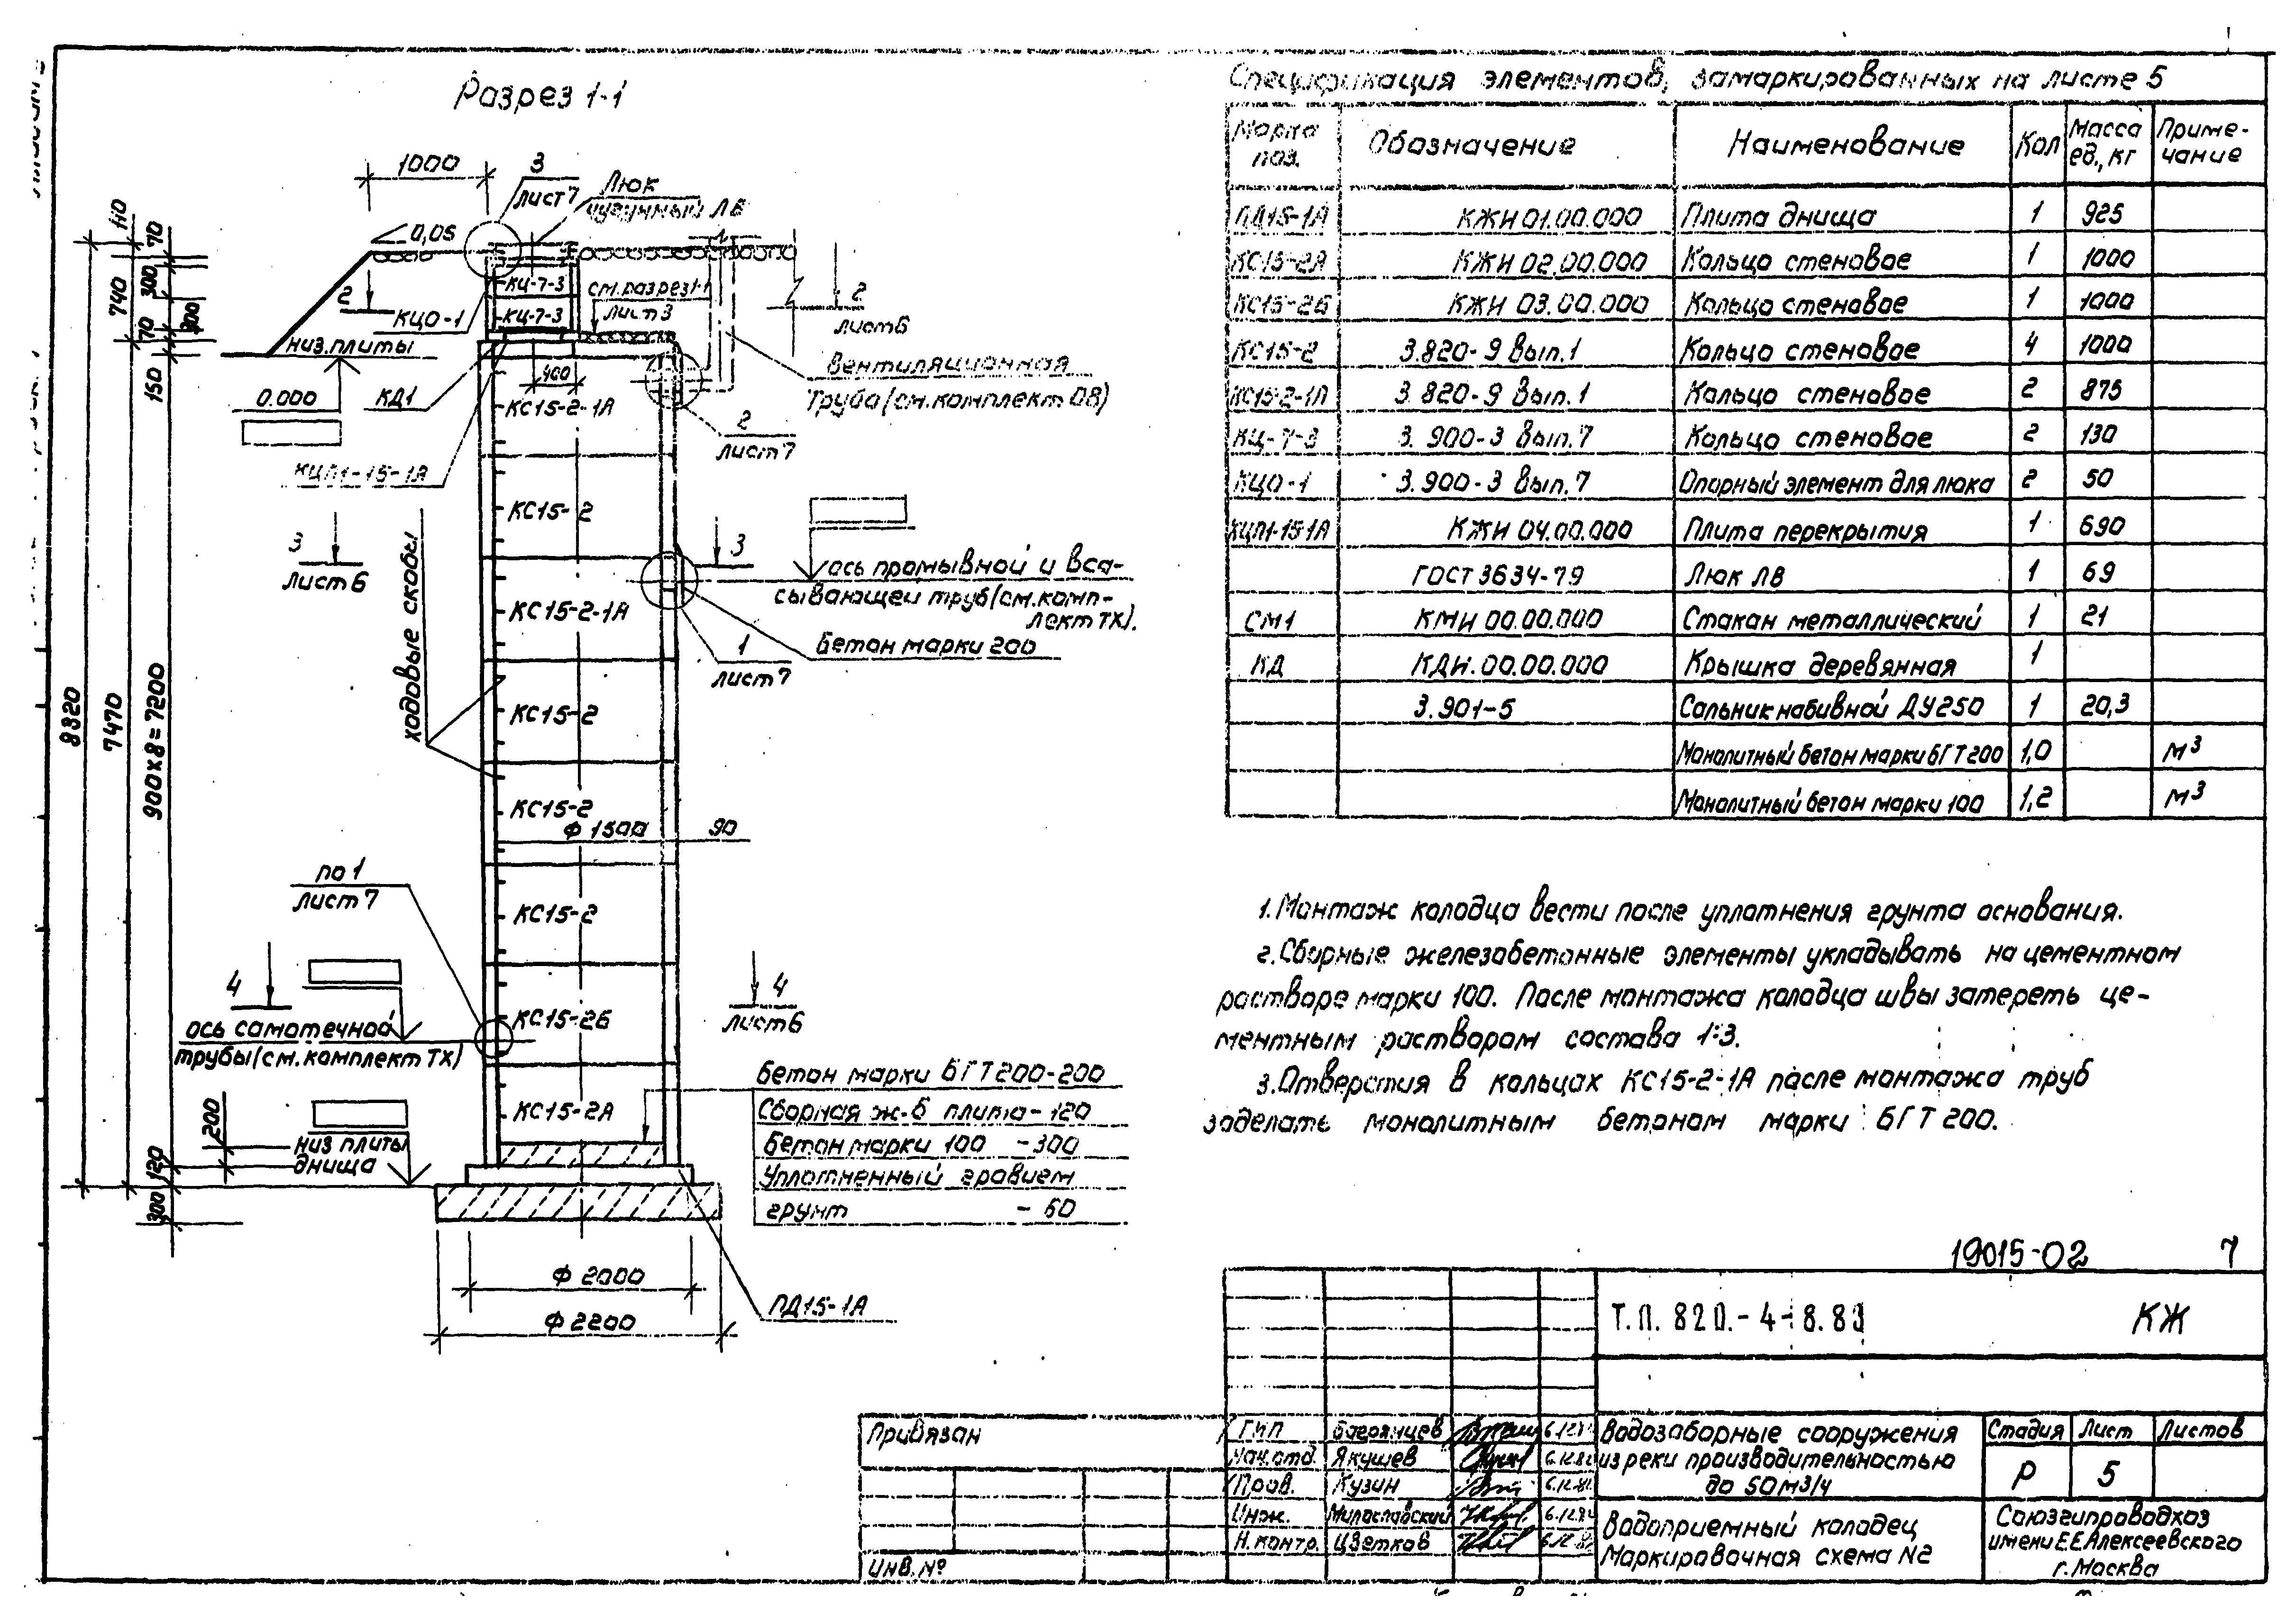 Разрез 1-1
1000
3
лист 7
Люк
чугунный ЛВ
0,05
110
70
300
740
300
70
150
2
КЦ-7-3
КЦ-7-3
см.разрез 1-1
лист 3
2
лист 6
КЦО-1
низ.плиты
0.000
КД1
400
КС15-2-1А
Вентиляционная
труба (см.комплект ОВ)
2
лист 7
КЦП1-15-1А
КС15-2
3
лист 6
3
ходовые скобы
ось промывной и вса-
сывающей труб (см.комп-
лект ТХ).
КС15-2-1А
Бетон марки 200
1
лист 7
8820
7470
900х8=7200
КС15-2
КС15-2
ф 1500
90
по 1
лист 7
КС15-2
4
4
лист 6
ось самотечной
трубы (см.комплект ТХ)
КС15-2Б
КС15-2А
200
низ плиты
днища
120
300
Бетон марки БГТ200-200
Сборная ж-б плита - 120
Бетон марки 100 - 300
Уплотненный гравием
грунт - 60
ф 2000
ф 2200
ПД15-1А
Спецификация элементов, замаркированных на листе 5
Марка поз. Обозначение Наименование Кол Масса ед., кг Приме-чание
ПД15-1А КЖИ 01.00.000 Плита днища 1 925
КС15-2А КЖИ 02.00.000 Кольцо стеновое 1 1000
КС15-2Б КЖИ 03.00.000 Кольцо стеновое 1 1000
КС15-2 3.820-9 Вып.1 Кольцо стеновое 4 1000
КС15-2-1А 3.820-9 Вып.1 Кольцо стеновое 2 875
КЦ-7-3 3.900-3 Вып.7 Кольцо стеновое 2 130
КЦО-1 3.900-3 Вып.7 Опорный элемент для люка 2 50
КЦП1-15-1А КЖИ 04.00.000 Плита перекрытия 1 690
ГОСТ 3634-79 Люк ЛВ 1 69
СМ1 КМИ 00.00.000 Стакан металлический 1 21
КД КДИ.00.00.000 Крышка деревянная 1
3.901-5 Сальник набивной ДУ250 1 20,3
Монолитный бетон марки БГТ200 1,0 м³
Монолитный бетон марки 100 1,2 м³
1. Монтаж колодца вести после уплотнения грунта основания.
2. Сборные железобетонные элементы укладывать на цементном
растворе марки 100. После монтажа колодца швы затереть це-
ментным раствором состава 1:3.
3. Отверстия в кольцах КС15-2-1А после монтажа труб
заделать монолитным бетоном марки БГТ200.
19015-02 7
Т.П. 820-4-8.83 КЖ
Привязан
Инв. №
ГИП Багрянцев
Нач.отд. Якушев
Пров. Кузин
Инж. Милославский
Н.контр. Цветков
Водозаборные сооружения
из реки производительностью
до 50 м3/ч
Стадия Лист Листов
Р 5
Водоприемный колодец
Маркировочная схема №2
Союзгипроводхоз
имени Е.Е.Алексеевского
г.Москва